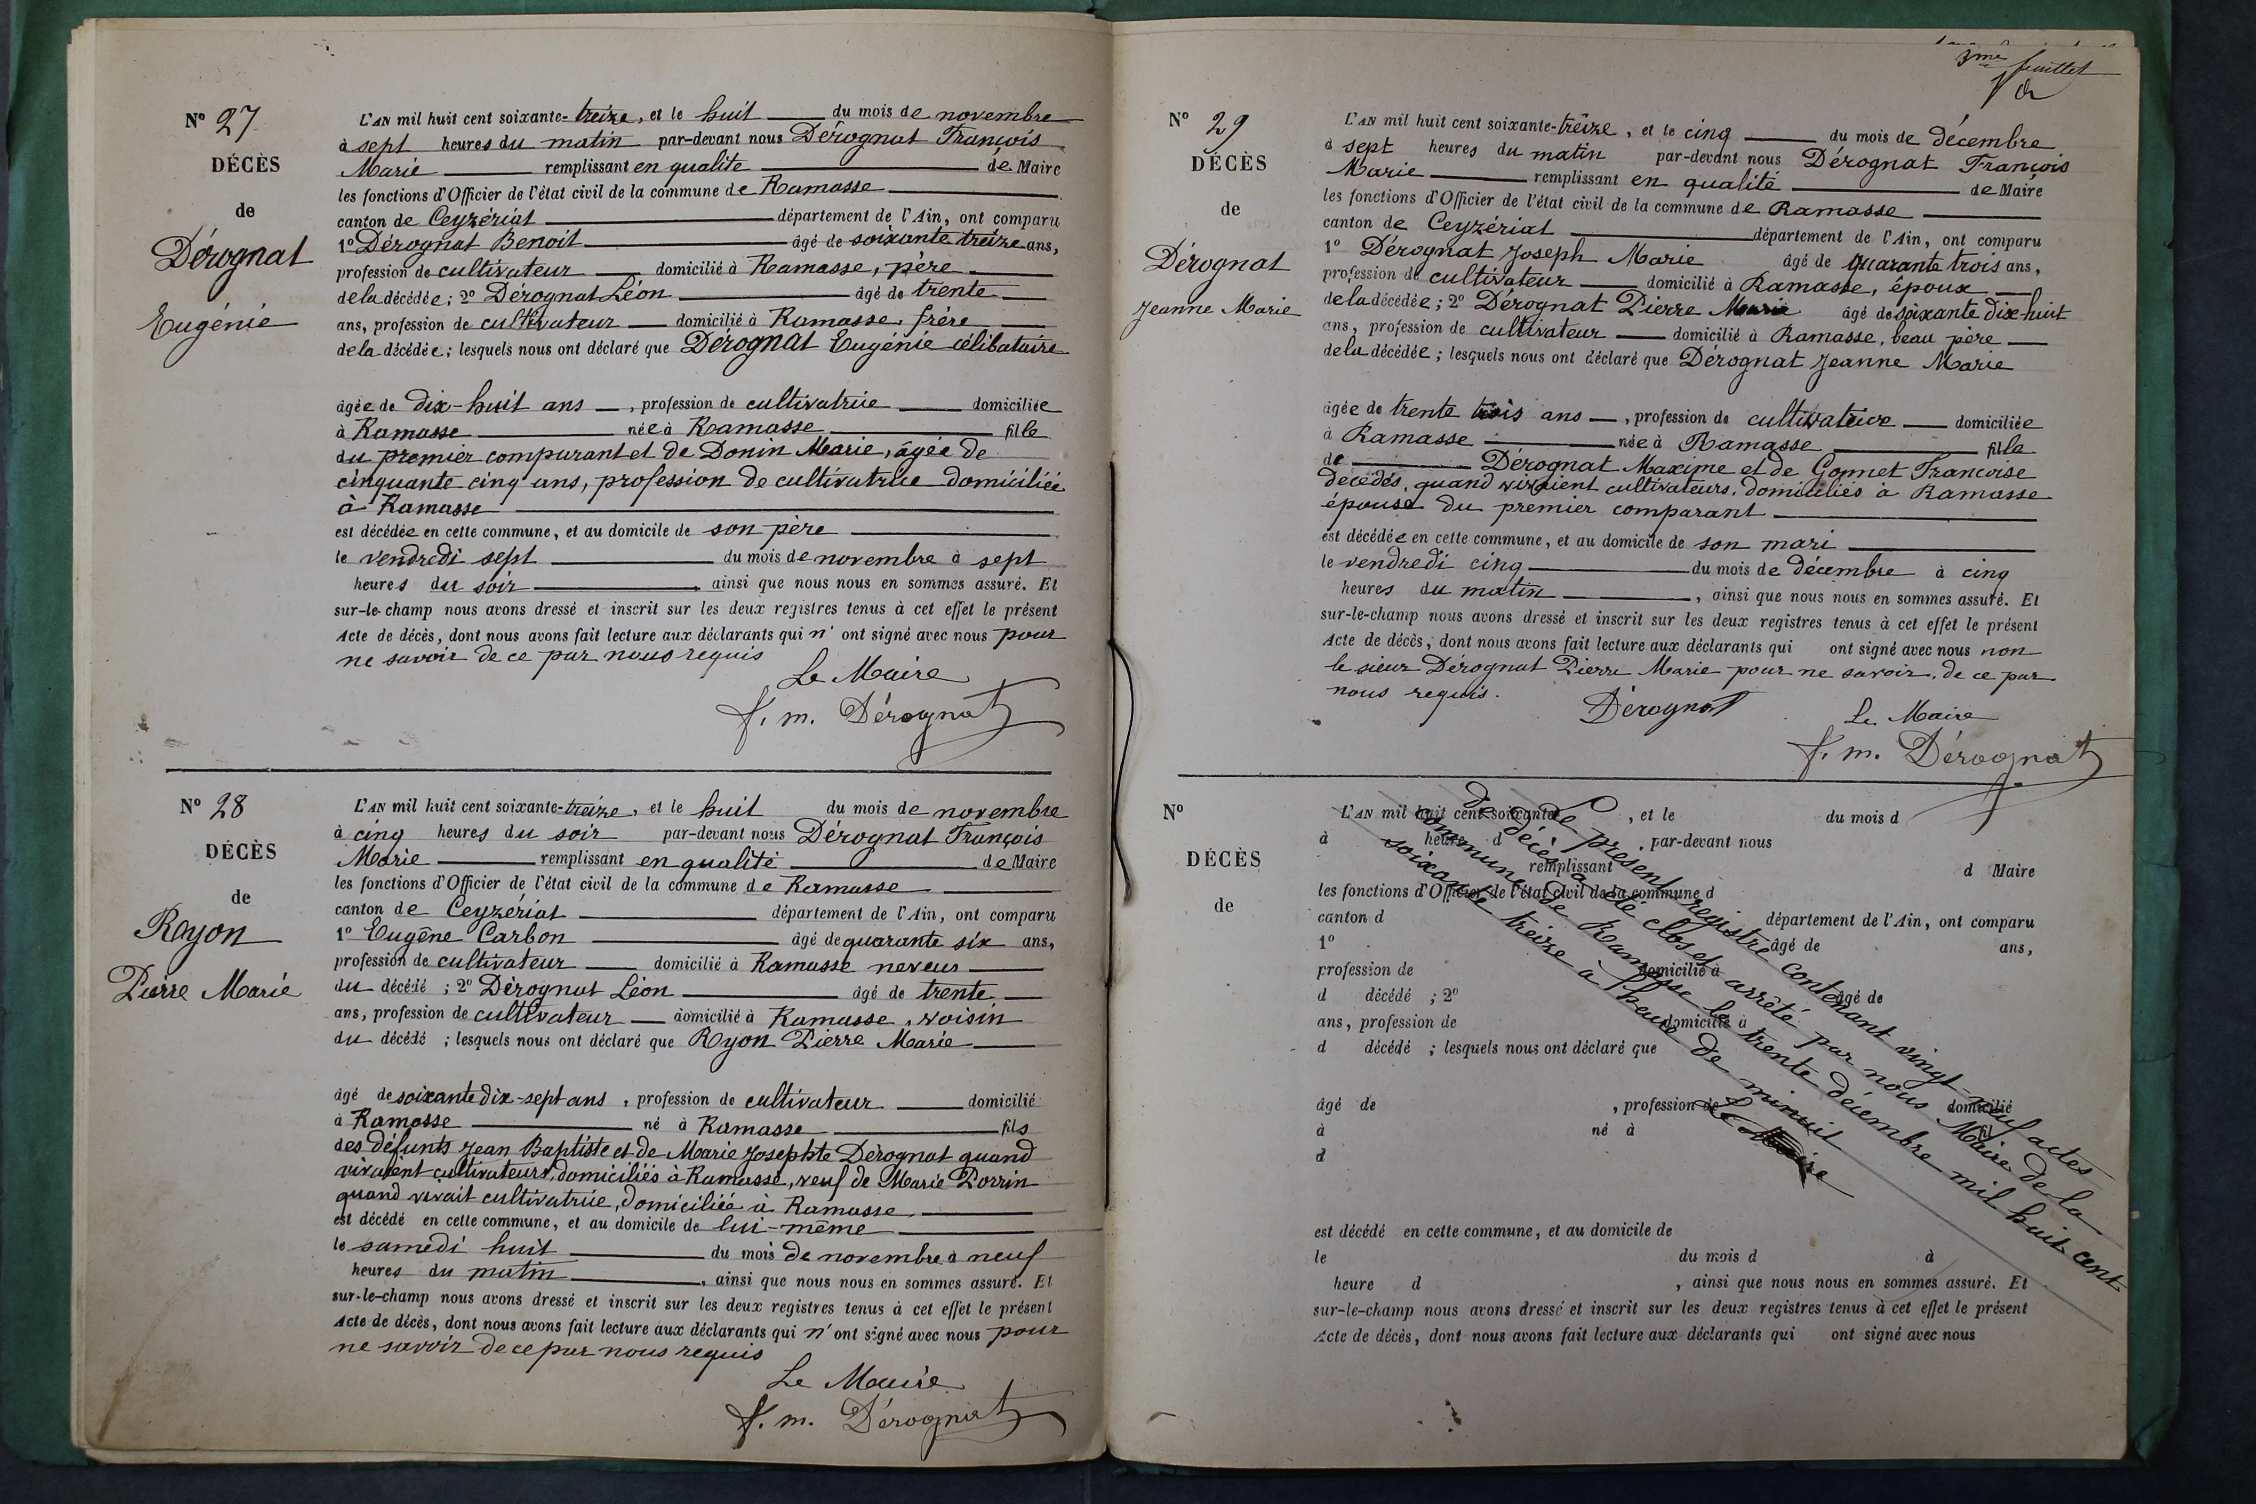 Nº 27
DÉCÈS
de
Dérognat
Eugénie
L'AN mil huit cent soixante-treize, et le huit du mois de novembre
à sept heures du matin par-devant nous Dérognat François
Marie remplissant en qualité de Maire
les fonctions d'Officier de l'état civil de la commune de Ramasse
canton de Ceyzériat département de l'Ain, ont comparu
1º Dérognat Benoit âgé de soixante treize ans,
profession de cultivateur domicilié à Ramasse, père
de la décédée; 2º Dérognat Léon âgé de trente
ans, profession de cultivateur domicilié à Ramasse, frère
de la décédée; lesquels nous ont déclaré que Dérognat Eugénie célibataire
âgée de dix-huit ans, profession de cultivatrice domiciliée
à Ramasse née à Ramasse fille
du premier comparant et de Donin Marie, âgée de
cinquante cinq ans, profession de cultivatrice domiciliée
à Ramasse
est décédée en cette commune, et au domicile de son père
le vendredi sept du mois de novembre à sept
heures du soir ainsi que nous nous en sommes assuré. Et
sur-le-champ nous avons dressé et inscrit sur les deux registres tenus à cet effet le présent
Acte de décès, dont nous avons fait lecture aux déclarants qui n'ont signé avec nous pour
ne savoir de ce par nous requis
Le Maire
f. m. Dérognat
Nº 28
DÉCÈS
de
Rayon
Pierre Marie
L'AN mil huit cent soixante-treize, et le huit du mois de novembre
à cinq heures du soir par-devant nous Dérognat François
Marie remplissant en qualité de Maire
les fonctions d'Officier de l'état civil de la commune de Ramasse
canton de Ceyzériat département de l'Ain, ont comparu
1º Eugène Carbon âgé de quarante six ans,
profession de cultivateur domicilié à Ramasse neveux
du décédé; 2º Dérognat Léon âgé de trente
ans, profession de cultivateur domicilié à Ramasse, voisin
du décédé; lesquels nous ont déclaré que Rayon Pierre Marie
âgé de soixante dix-sept ans, profession de cultivateur domicilié
à Ramasse né à Ramasse fils
des défunts Jean Baptiste et de Marie Josephte Dérognat quand
vivaient cultivateurs, domiciliés à Ramasse, veuf de Marie Porrin
quand vivait cultivatrice, domiciliée à Ramasse
est décédé en cette commune, et au domicile de lui-même
le samedi huit du mois de novembre à neuf
heures du matin, ainsi que nous nous en sommes assuré. Et
sur-le-champ nous avons dressé et inscrit sur les deux registres tenus à cet effet le présent
Acte de décès, dont nous avons fait lecture aux déclarants qui n'ont signé avec nous pour
ne savoir de ce par nous requis
Le Maire
f. m. Dérognat
3me feuillet
Nº 29
DÉCÈS
de
Dérognat
Jeanne Marie
L'AN mil huit cent soixante-treize, et le cinq du mois de décembre
à sept heures du matin par-devant nous Dérognat François
Marie remplissant en qualité de Maire
les fonctions d'Officier de l'état civil de la commune de Ramasse
canton de Ceyzériat département de l'Ain, ont comparu
1º Dérognat Joseph Marie âgé de quarante trois ans,
profession de cultivateur domicilié à Ramasse, époux
de la décédée; 2º Dérognat Pierre Marie âgé de soixante dix-huit
ans, profession de cultivateur domicilié à Ramasse, beau père
de la décédée; lesquels nous ont déclaré que Dérognat Jeanne Marie
âgée de trente trois ans, profession de cultivatrice domiciliée
à Ramasse née à Ramasse fille
de Dérognat Maxime et de Gonnet Francoise
décédés, quand vivaient cultivateurs, domiciliés à Ramasse
épouse du premier comparant
est décédée en cette commune, et au domicile de son mari
le vendredi cinq du mois de décembre à cinq
heures du matin, ainsi que nous nous en sommes assuré. Et
sur-le-champ nous avons dressé et inscrit sur les deux registres tenus à cet effet le présent
Acte de décès, dont nous avons fait lecture aux déclarants qui ont signé avec nous non
le sieur Dérognat Pierre Marie pour ne savoir, de ce par
nous requis.
Dérognat
Le Maire
f. m. Dérognat
Nº
DÉCÈS
de
L'AN mil huit cent soixante , et le du mois d
à heure d par-devant nous
remplissant d Maire
les fonctions d'Officier de l'état civil de la commune d
canton d département de l'Ain, ont comparu
1º âgé de ans,
profession de domicilié à
d décédé ; 2º âgé de
ans, profession de domicilié à
d décédé ; lesquels nous ont déclaré que
âgé de , profession de domicilié
à né à fil
d
est décédé en cette commune, et au domicile de
le du mois d à
heure d , ainsi que nous nous en sommes assuré. Et
sur-le-champ nous avons dressé et inscrit sur les deux registres tenus à cet effet le présent
Acte de décès, dont nous avons fait lecture aux déclarants qui ont signé avec nous
Le présent registre contenant vingt-neuf actes
de décès a été clos et arrêté par nous Maire de la
commune de Ramasse le trente décembre mil huit cent
soixante treize à l'heure de minuit
Le Maire